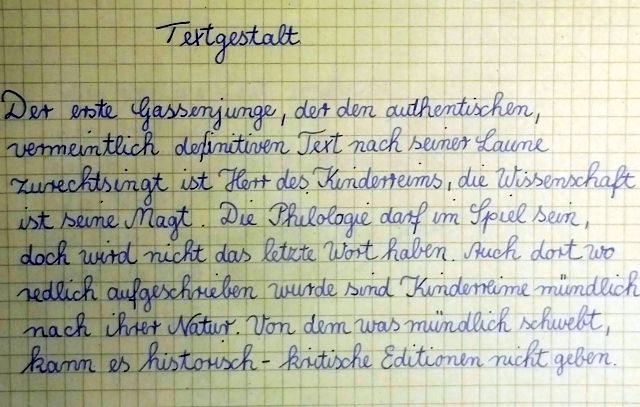 Textgestalt
Der erste Gassenjunge, der den authentischen,
vermeintlich definitiven Text nach seiner Laune
zurechtsingt ist Herr des Kinderreims, die Wissenschaft
ist seine Magt. Die Philologie darf im Spiel sein,
doch wird nicht das letzte Wort haben. Auch dort wo
redlich aufgeschrieben wurde sind Kinderreime mündlich
nach ihrer Natur. Von dem was mündlich schwebt,
kann es historisch-kritische Editionen nicht geben.